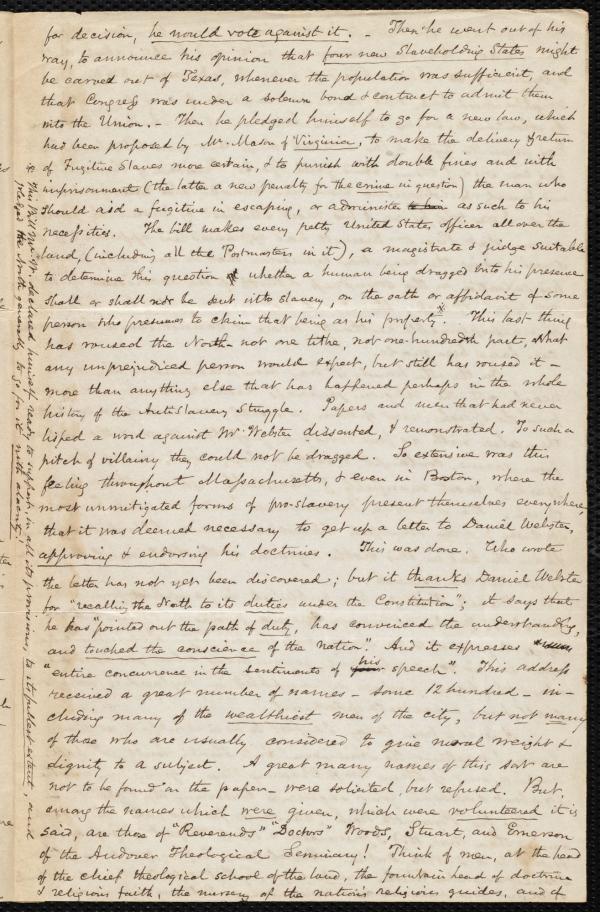 for decision, he would vote against it. - Then he went out of his
way, to announce his opinion that four new Slaveholding States might
be carved out of Texas, whenever the population was sufficient, and
that Congress was under a solemn bond & contract to admit them
into the Union. - Then he pledged himself to go for a new law, which
had been proposed by Mr. Mason of Virginia, to make the delivery & return
of Fugitive Slaves more certain, & to punish with double fines and with
imprisonment (the latter a new penalty for the crime in question) the man who
should aid a fugitive in escaping, or administer as such to his
necessities. The bill makes every petty United States officer all over the
land, (including all the Postmasters in it), a magistrate & judge suitable
to determine this question whether a human being dragged into his presence
shall or shall not be sent into slavery, on the oath or affidavit of some
person who presumes to claim that being as his property x. This last thing
has roused the North - not one tithe, not one-hundredth part, what
any unprejudiced person would expect, but still has roused it -
more than anything else that has happened perhaps in the whole
history of the AntiSlavery Struggle. Papers and men that had never
lisped a word against Mr Webster dissented, & remonstrated. To such a
pitch of villainy they could not be dragged. So extensive was this
feeling throughout Massachusetts, & even in Boston, where the
most unmitigated forms of pro-slavery present themselves everywhere,
that it was deemed necessary to get up a letter to Daniel Webster,
approving & endorsing his doctrines. This was done. Who wrote
the letter has not yet been discovered; but it thanks Daniel Webster
for "recalling the North to its duties under the Constitution"; it says that
he has "pointed out the path of duty, has convinced the understanding,
and touched the conscience of the nation". And it expresses
"entire concurrence in the sentiments of his speech". This address
received a great number of names - some 12 hundred - in-
cluding many of the wealthiest men of the city, but not many
of those who are usually considered to give moral weight &
dignity to a subject. A great many names of this sort are
not to be found on the paper - were solicited, but refused. But,
among the names which were given, which were volunteered it is
said, are those of "Reverends" "Doctors" Woods, Stuart, and Emerson
of the Andover Theological Seminary! Think of men, at the head
of the chief theological school of the land, the fountain head of doctrine
& religious faith, the nursery of the nation's religious guides, and of
x This Bill Mr. W. declared himself ready to support in all its provisions, to its fullest extent, and
pledged the North generally to go for it with alacrity!